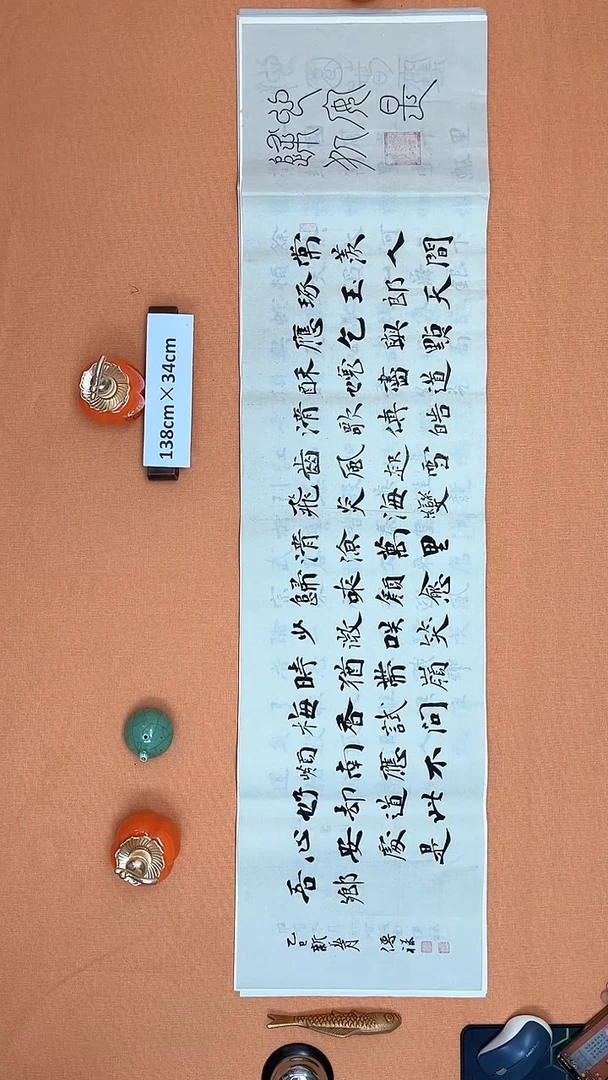 常羡人間
琢玉郎天
應乞與點
酥娘盡道
清歌傳皓
齒風起雪
飛炎海變
清涼萬里
歸來顏愈
少微笑笑
時猶帶嶺
梅香試問
嶺南應不
好却道此
心安處是
吾鄉
乙巳新
138cm×34cm